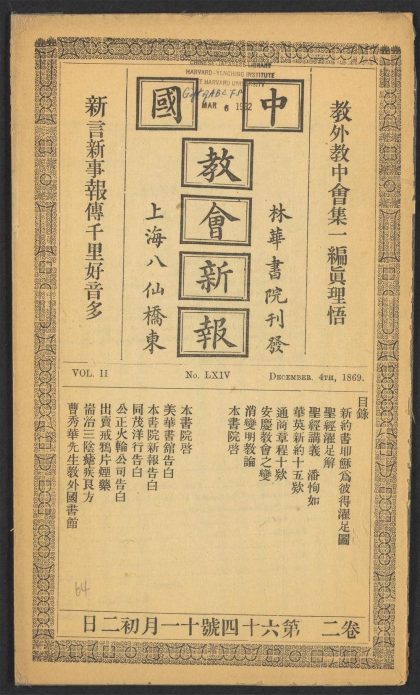 HARVARD-YENCHING INSTITUTE
AT HARVARD UNIVERSITY
MAR 6
中國
教會新報
教外教中會集一編眞理悟
林華書院刊發
上海八仙橋東
新言新事報傳千里好音多
VOL. II No. LXIV DECEMBER. 4TH, 1869.
目錄
新約書耶穌爲彼得濯足圖
聖經濯足解
聖經講義 潘恂如
華英新約十五欵
通商章程十欵
安慶教會之變
消變明教論
本書院啓
本書院啓
美華書館告白
本書院新報告白
同茂洋行告白
公正火輪公司告白
出賣戒鴉片煙藥
耑治三陰瘧疾良方
曹秀華先生教外國書館
64
卷二 第六十四號十一月初二日